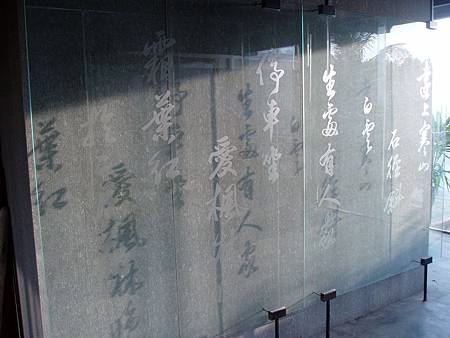 遠上寒山
石徑斜
白雲
生處有人家
停車坐
愛楓
霜葉紅
白雲
生處有人家
愛楓林晚
葉紅